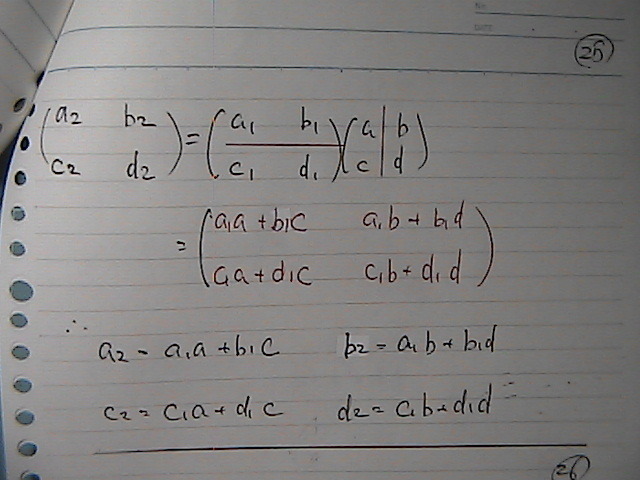 No.
DATE
25
(a2 b2 = (a1 b1 (a | b
c2 d2) c1 d1) c | d)
= (a1a + b1c a1b + b1d
c1a + d1c c1b + d1d)
∴
a2 = a1a + b1c b2 = a1b + b1d
c2 = c1a + d1c d2 = c1b + d1d
26